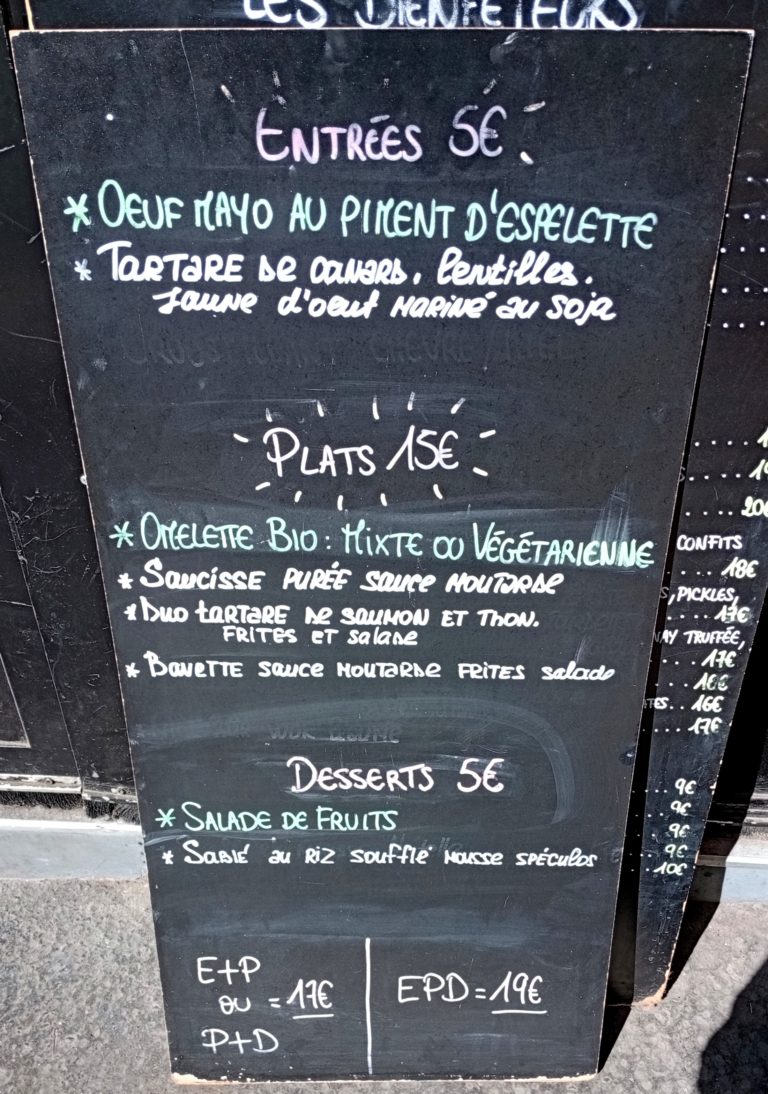 LES BIENFAITEURS
ENTRÉES 5€
* OEUF MAYO AU PIMENT D'ESPELETTE
* TARTARE DE CANARD, lentilles.
Jaune d'oeuf MARINÉ au soja
PLATS 15€
* OMELETTE BIO : MIXTE OU VÉGÉTARIENNE
* SAUCISSE PURÉE sauce MOUTARDE
* Duo tartare de saumon et thon.
FRITES et salade
* BAVETTE sauce MOUTARDE FRITES salade
DESSERTS 5€
* SALADE DE FRUITS
* SABLÉ au RIZ soufflé mousse spéculos
E+P
ou = 17€
P+D
EPD = 19€
20€
CONFITS
... 18€
, PICKLES,
.... 17€
TRUFFÉE,
.... 17€
.... 16€
.. 16€
.... 17€
.. 9€
.. 9€
. 9€
. 9€
.. 10€